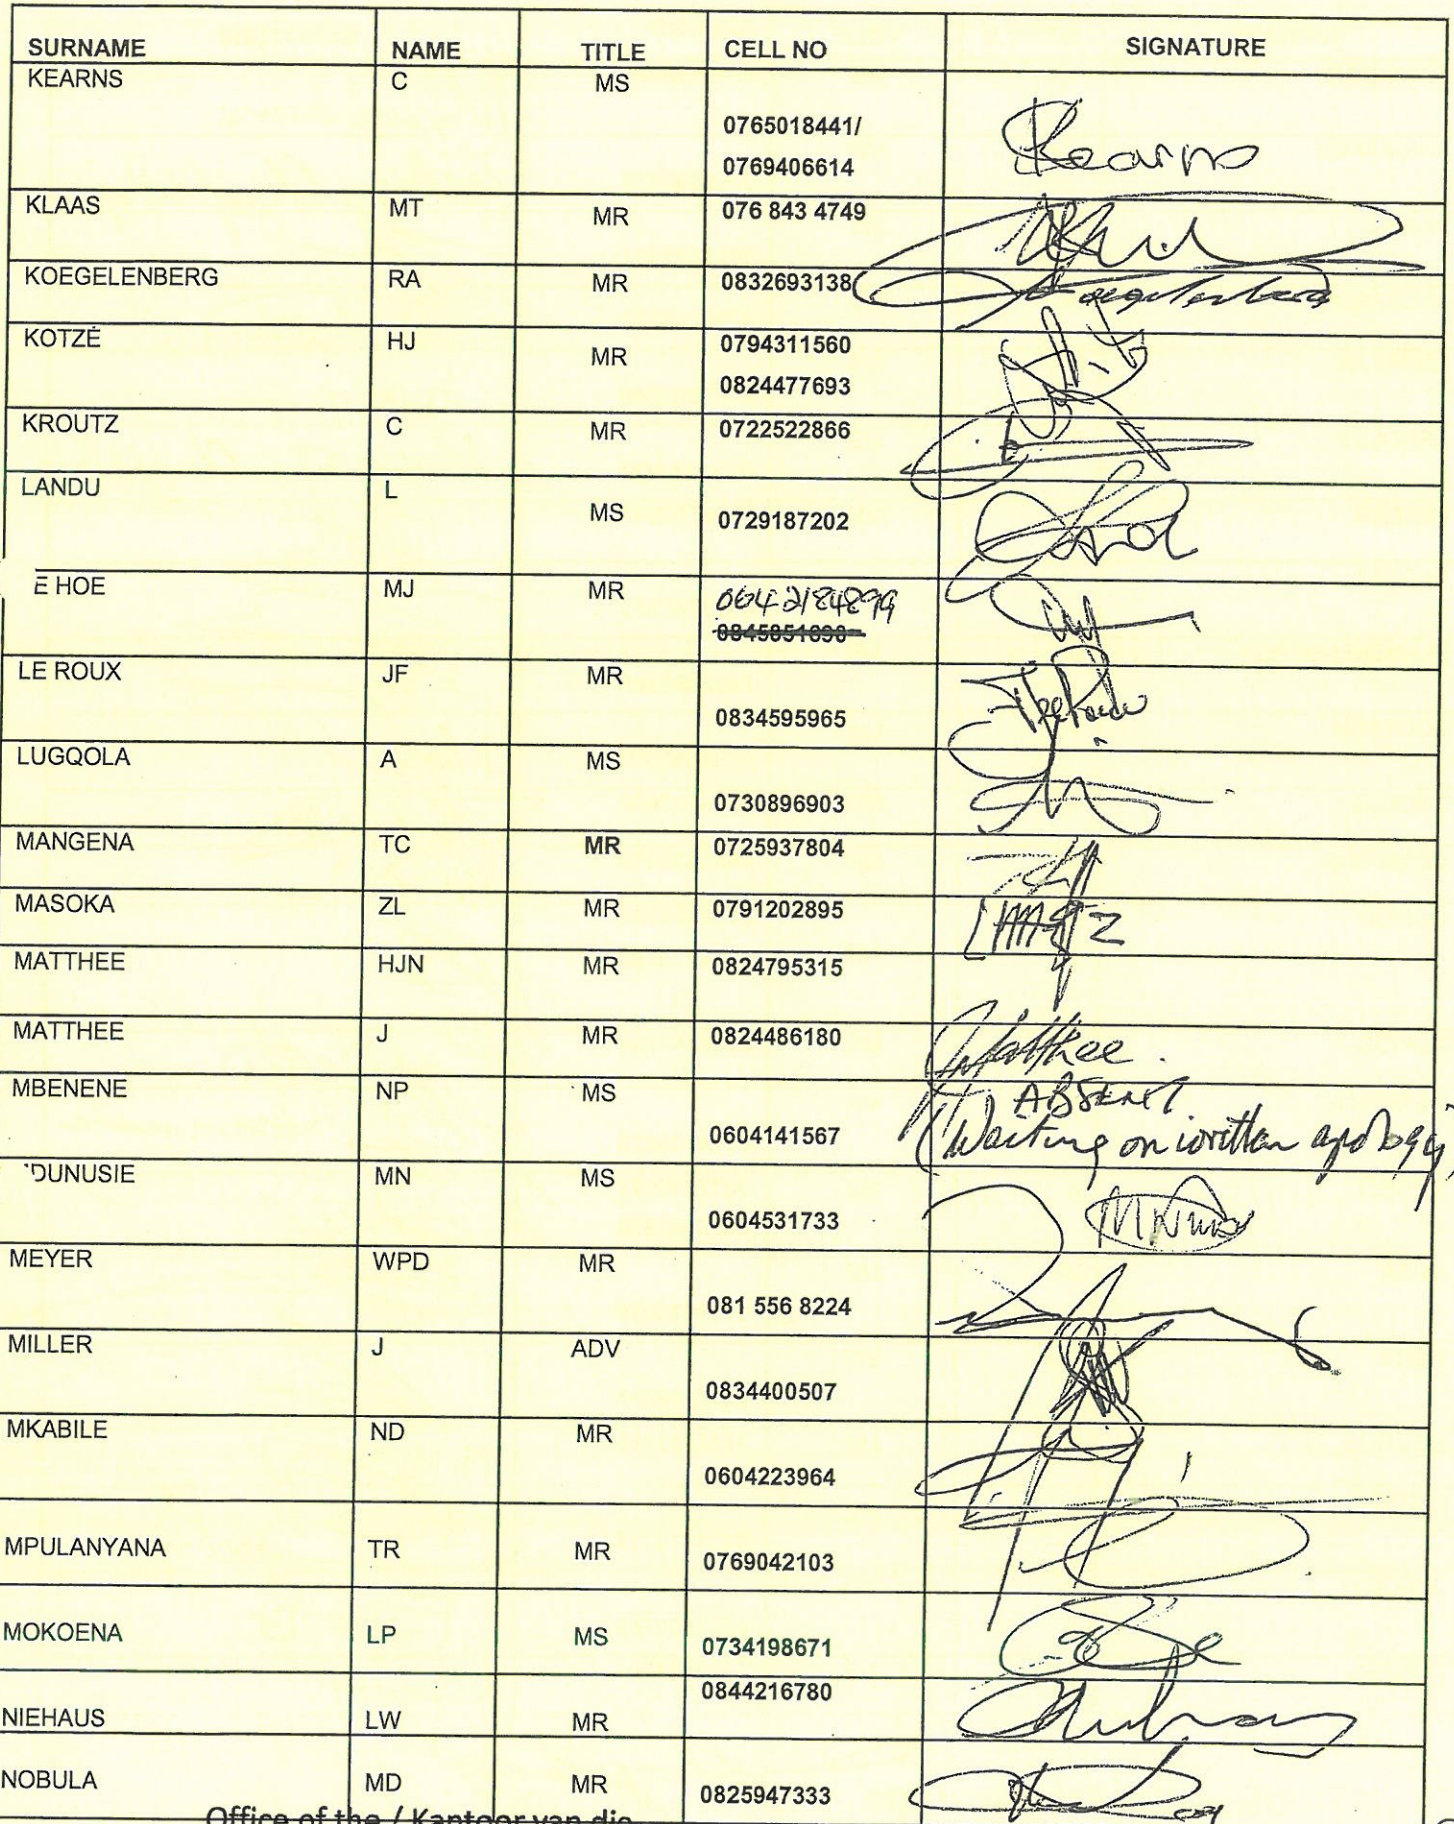 SURNAME NAME TITLE CELL NO SIGNATURE
KEARNS C MS 0765018441/
0769406614 Kearns
KLAAS MT MR 076 843 4749
KOEGELENBERG RA MR 0832693138 Koegelenberg
KOTZÉ HJ MR 0794311560
0824477693
KROUTZ C MR 0722522866
LANDU L MS 0729187202
E HOE MJ MR 0642184899
0845851090
LE ROUX JF MR 0834595965
LUGQOLA A MS 0730896903
MANGENA TC MR 0725937804
MASOKA ZL MR 0791202895
MATTHEE HJN MR 0824795315
MATTHEE J MR 0824486180 JMatthee.
MBENENE NP MS 0604141567 ABSENT
(Waiting on written apology)
DUNUSIE MN MS 0604531733
MEYER WPD MR 081 556 8224
MILLER J ADV 0834400507
MKABILE ND MR 0604223964
MPULANYANA TR MR 0769042103
MOKOENA LP MS 0734198671
NIEHAUS LW MR 0844216780
NOBULA MD MR 0825947333
Office of the / Kantoor van die